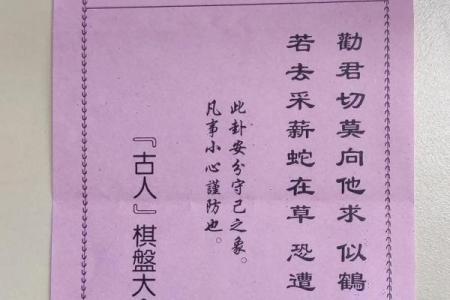 勸君切莫向他求 似鶴
若去采薪蛇在草 恐遭
此卦安分守己之象。
凡事小心謹防也。
『古人』棋盤大